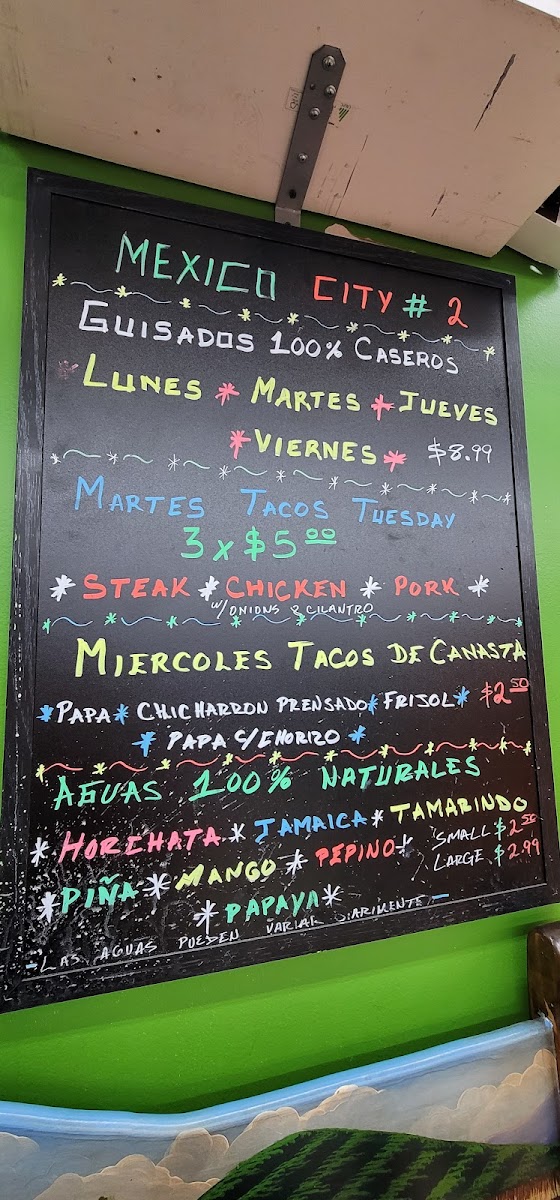 MEXICO CITY # 2
GUISADOS 100% CASEROS
LUNES * MARTES * JUEVES
* VIERNES * $8.99
MARTES TACOS TUESDAY
3 x $5.00
* STEAK * CHICKEN * PORK *
W/ ONIONS & CILANTRO
MIERCOLES TACOS DE CANASTA
* PAPA * CHICHARRON PRENSADO * FRIJOL * $2.50
* PAPA C/CHORIZO *
AGUAS 100% NATURALES
* HORCHATA * JAMAICA * TAMARINDO
* PIÑA * MANGO * PEPINO * SMALL $2.50
LARGE $2.99
* PAPAYA *
- LAS AGUAS PUEDEN VARIAR DIARIMENTE -